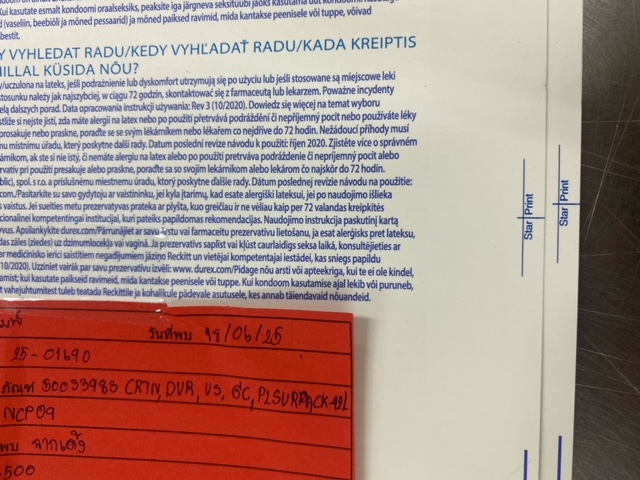 Kui kasutate esmalt kondoomi oraalseksiks, peaksite iga järgneva seksitüübi jaoks kasutama uut kondoomi. Kondoomi
(vaseliin, beebiõli ja mõned pessaarid) ja mõned paiksed ravimid, mida kantakse peenisele või tuppe, võivad
Y VYHLEDAT RADU/KEDY VYHĽADAŤ RADU/KADA KREIPTIS
MILLAL KÜSIDA NÕU?
y/uczulona na lateks, jeśli podrażnienie lub dyskomfort utrzymują się po użyciu lub jeśli stosowane są miejscowe leki
stosunku należy jak najszybciej, w ciągu 72 godzin, skontaktować się z farmaceutą lub lekarzem. Poważne incydenty
elą dalszych porad. Data opracowania instrukcji używania: Rev 3 (10/2020). Dowiedz się więcej na temat wyboru
stliže si nejste jisti, zda máte alergii na latex nebo po použití přetrvává podráždění či nepříjemný pocit nebo používáte léky
prosakuje nebo praskne, poraďte se se svým lékárníkem nebo lékařem co nejdříve do 72 hodin. Nežádoucí příhody musí
mu místnímu úřadu, který poskytne další rady. Datum poslední revize návodu k použití: říjen 2020. Zjistěte více o správném
árnikom, ak ste si nie istý, či nemáte alergiu na latex alebo po použití pretrváva podráždenie či nepríjemný pocit alebo
rvatív pri použití presakuje alebo praskne, poraďte sa so svojím lekárnikom alebo lekárom čo najskôr do 72 hodín.
blic), spol. s r.o. a príslušnému miestnemu úradu, ktorý poskytne ďalšie rady. Dátum poslednej revízie návodu na použitie:
com./Pasitarkite su savo gydytoju ar vaistininku, jei kyla įtarimų, kad esate alergiški lateksui, jei po naudojimo išlieka
s vaistus. Jei sueities metu prezervatyvas prateka ar plyšta, kuo greičiau ir ne vėliau kaip per 72 valandas kreipkitės
cionalinei kompetentingai institucijai, kuri pateiks papildomas rekomendacijas. Naudojimo instrukcija paskutinį kartą
yvus. Apsilankykite durex.com/Pārrunājiet ar savu ārstu vai farmaceitu prezervatīvu lietošanu, ja esat alerģisks pret lateksu,
das zāles (ziedes) uz dzimumlocekļa vai vaginā. Ja prezervatīvs saplīst vai kļūst caurlaidīgs seksa laikā, konsultējieties ar
ar medicīnisko ierīci saistītiem negadījumiem jāziņo Reckitt un vietējai kompetentajai iestādei, kas sniegs papildu
(10/2020). Uzziniet vairāk par savu prezervatīvu izvēli: www. durex.com/Pidage nõu arsti või apteekriga, kui te ei ole kindel,
amist; kui kasutate paikseid ravimeid, mida kantakse peenisele või tuppe. Kui kondoom kasutamise ajal lekib või puruneb,
t vahejuhtumitest tuleb teatada Reckittile ja kohalikule pädevale asutusele, kes annab täiendavaid nõuandeid.
Star Print
Star Print
วันที่พบ 18/06/25
25-01690
ภัณฑ์ 50033983 CRTN, DUR, US, 6C, P2SURPACK-12L
NCP09
พบ จากเครื่อง
500